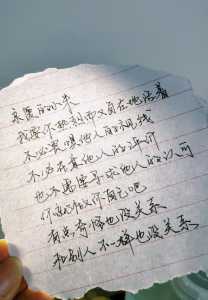 亲爱的小朱
我要你热烈而又自在地活着
不必畏惧他人的视线
不必在意他人的评价
也不需要寻求他人的认可
你就做你自己吧
有点奇怪也没关系
和别人不一样也没关系